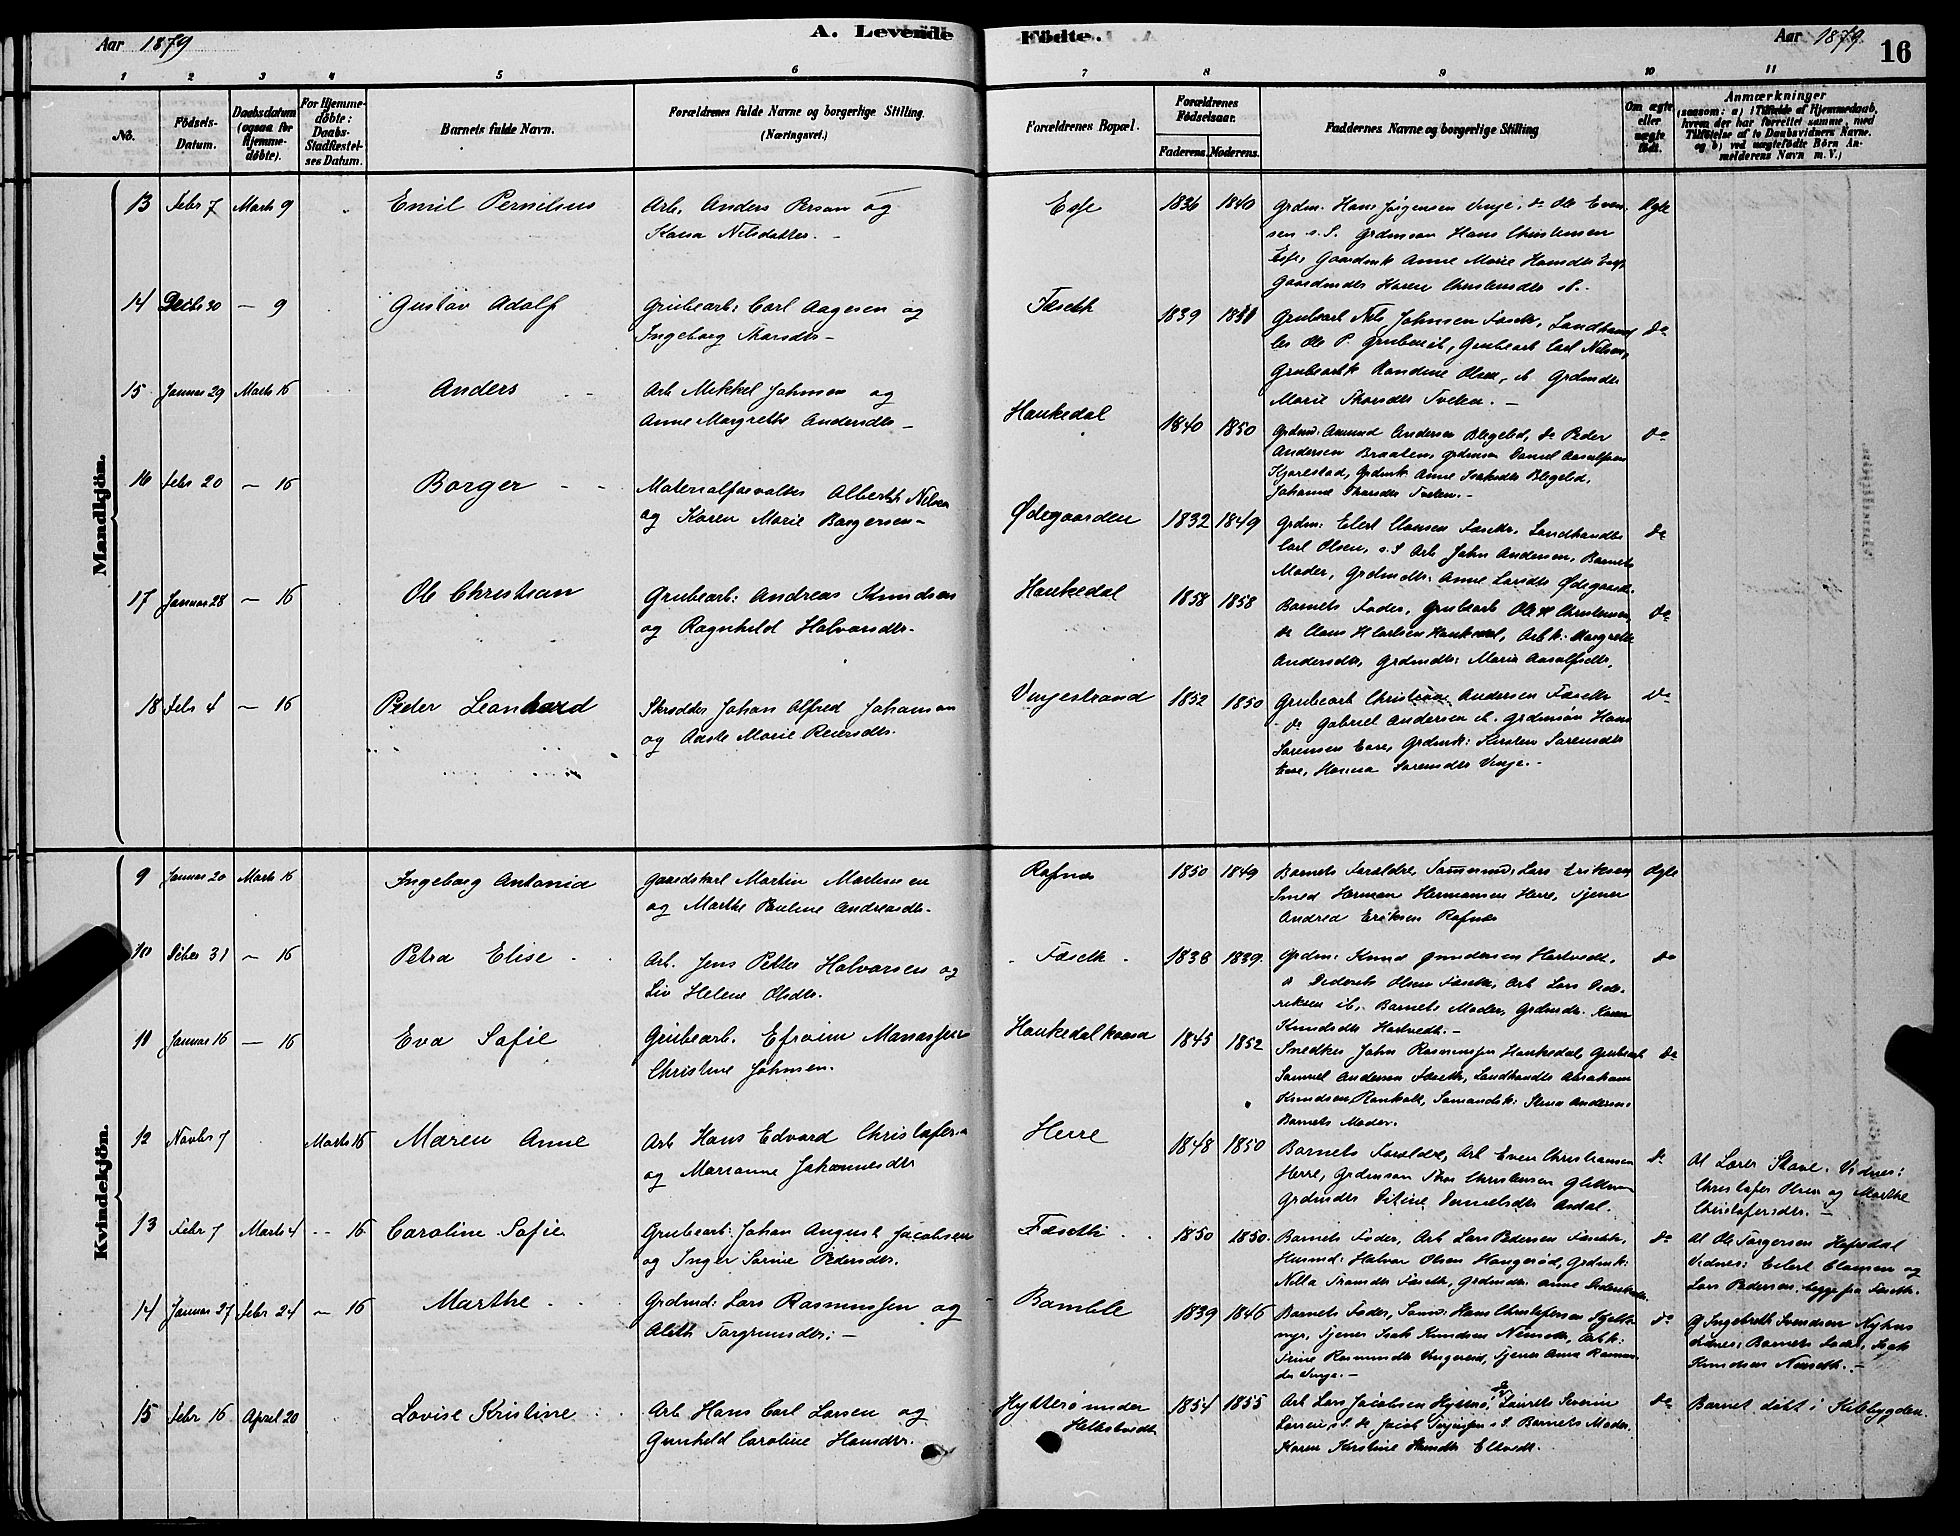 Aar 1879
A. Levende Födte.
Aar 1879
16
1 2 3 4 5 6 7 8 9 10 11
No.
Födsels-Datum.
Daabsdatum (ogsaa for Hjemmedöbte).
For Hjemmedöbte: Daabs-Stadfæstelses Datum.
Barnets fulde Navn.
Forældrenes fulde Navne og borgerlige Stilling.
(Næringsvei.)
Forældrenes Bopæl.
Forældrenes Födselsaar.
Faderens. Moderens.
Faddernes Navne og borgerlige Stilling
Om ægte eller uægte födt.
Anmærkninger
(saasom: a) i Tilfælde af Hjemmedaab, hvem der har forrettet samme, med Tilföielse af to Daabsvidners Navne, og b) ved uægtefödte Börn Anmelderens Navn m. V.)
Mandkjön.
13 Febr 7 Marts 9 Emil Pernilius Arb. Anders Person og
Kaisa Nilsdatter.
1836 1840 Grdm. Hans Jørgensen Vinje, do Ole Even-
sen s. S. Grdmsøn Hans Christensen
Ægte
14 Decbr 30 — 9 Gustav Adolf Grubearb: Carl Aagesen og
Ingeborg Thorsdtr
Fæseth 1839 Grubearb Nils Johnsen Fæseth, Landhand
ler Ole P. Grubearb Carl Nilsen,
Grubearbk Randine Olsen, Grdmdtr
Marie Thorsdtr Tveten.
do
15 Januar 29 Marts 16 Anders Arb Mikkel Johnsen og
Anne Margrethe Andersdtr
Haukedal 1840 1850 Grdmd: Amund Andersen Blegelid, do Peder
Andersen Braaten, Grdmsøn Daniel Aasolfsen
Kjørlestad, Grdmk Anne Isaksdtr Blegelid,
Johanne Thorsdtr Tveten.
do
16 Febr 20 — 16 Borger Materialforvalter Albert Nilsen
og Karen Marie Borgersen
Ødegaarden 1832 1849 Grdm: Eilert Clausen Fæseth, Landhandler
Carl Olsen, s. S Arb John Andersen, Barnets
Moder, Grdmdtr: Anne Larsdtr Ødegaard.
do
17 Januar 28 — 16 Ole Christian Grubearb: Andreas Knudsen
og Ragnhild Halvorsdtr.
Haukedal 1858 1858 Barnets Fader, Grubearb Ole H Christensen,
do Claus H Carlsen Haukedal, Arbk: Margrethe
Andersdtr, Grdmdtr: Maria Aasolfsdtr.
do
18 Febr 4 — 16 Peder Leonhard Skrædder Johan Alfred Johansen
og Aaste Marie Reiersdtr.
Vinjestrand 1852 1850 Grubearb Christian Andersen Fæseth
do Gabriel Andersen ib. Grdmsøn Hans
Sørensen Grdmk: Kirsten Sørensdtr
Hanna Sørensdtr Vinje.
do
Kvindekjön.
9 Januar 20 Marts 16 Ingeborg Antonia Gaardskarl Martin Martinsen
og Marthe Pauline Andreasdtr.
Rafnes 1850 1849 Barnets Forældre, Tømmermd: Lars Eriksen
Smed Herman Hermansen Herre, Tjener
Andrea Eriksen Rafnes
Ægte
10 Decbr 31 — 16 Petra Elise Arb. Jens Petter Halvorsen og
Liv Helene Olsdtr.
Fæseth 1838 1839 Grdm: Knud Gundersen Hastvedt.
Dederek Olsen Fæseth, Arb Lars Dede-
reksen ib. Barnets Moder, Grdmdtr Karen
Knudsdtr Hastvedt.
do
11 Januar 16 — 16 Eva Sofie Grubearb. Efroim Manassesen
Christine Johnsen.
Haukedalkaasa 1845 1852 Snedker John Rasmussen Haukedal, Grubearb
Samuel Andersen Fæseth, Landhandler Abraham
Knudsen, Rønholt, Sømandsk: Stina Andersen
Barnets Moder.
do
12 Novbr 7 Marts 16 Maren Anne Arb Hans Edvard Christofersen
og Marianne Johannesdtr
Herre 1848 1850 Barnets Forældre, Arb Even Christiansen
Herre, Grdmsøn Thor Christensen
Grdmdtr Danielsdtr
do
Af Lærer Stave. Vidner:
Christofer Olsen og Marthe
Christofersdtr.
13 Febr 7 Marts 4 — 16 Caroline Sofie Grubearb: Johan August Jacobsen
og Inger Sørine Pedersdtr.
Fæseth 1850 1850 Barnets Fader, Arb Lars Pedersen Fæseth,
Husmd: Halvor Olsen Haugerød, Grdmk:
Fæseth, Grdmdtr: Anne
do
Af Ole Torgersen Hafsdal
Vidner: Eilert Clausen og
Lars Pedersen, begge fra Fæseth.
14 Januar 27 Febr 24 — 16 Marthe Grdmd: Lars Rasmussen og
Torgrimsdtr:
Bamble 1839 1846 Barnets Fader, Sømd: Hans Christofersen
Tjener Isak Knudsen Nenseth, Arbk:
Trine Rasmusdtr Tjener Anna Rasmus
dtr Vinje.
do
G Ingebreth Svendsen Nyhus
Vidner: Barnets Fader, Isak
Knudsen Nenseth.
15 Febr 16 April 20 Lovise Kristine Arb Hans Carl Larsen og
Gunhild Caroline Hansdtr.
Hytterø under
1854 1855 Arb Lars Jacobsen Hytterø, Laurits Severin
Larsen, s. S. do Jacob s. S. Barnets Moder,
Karen Kirstine
do
Barnet døbt i Skibbygden.